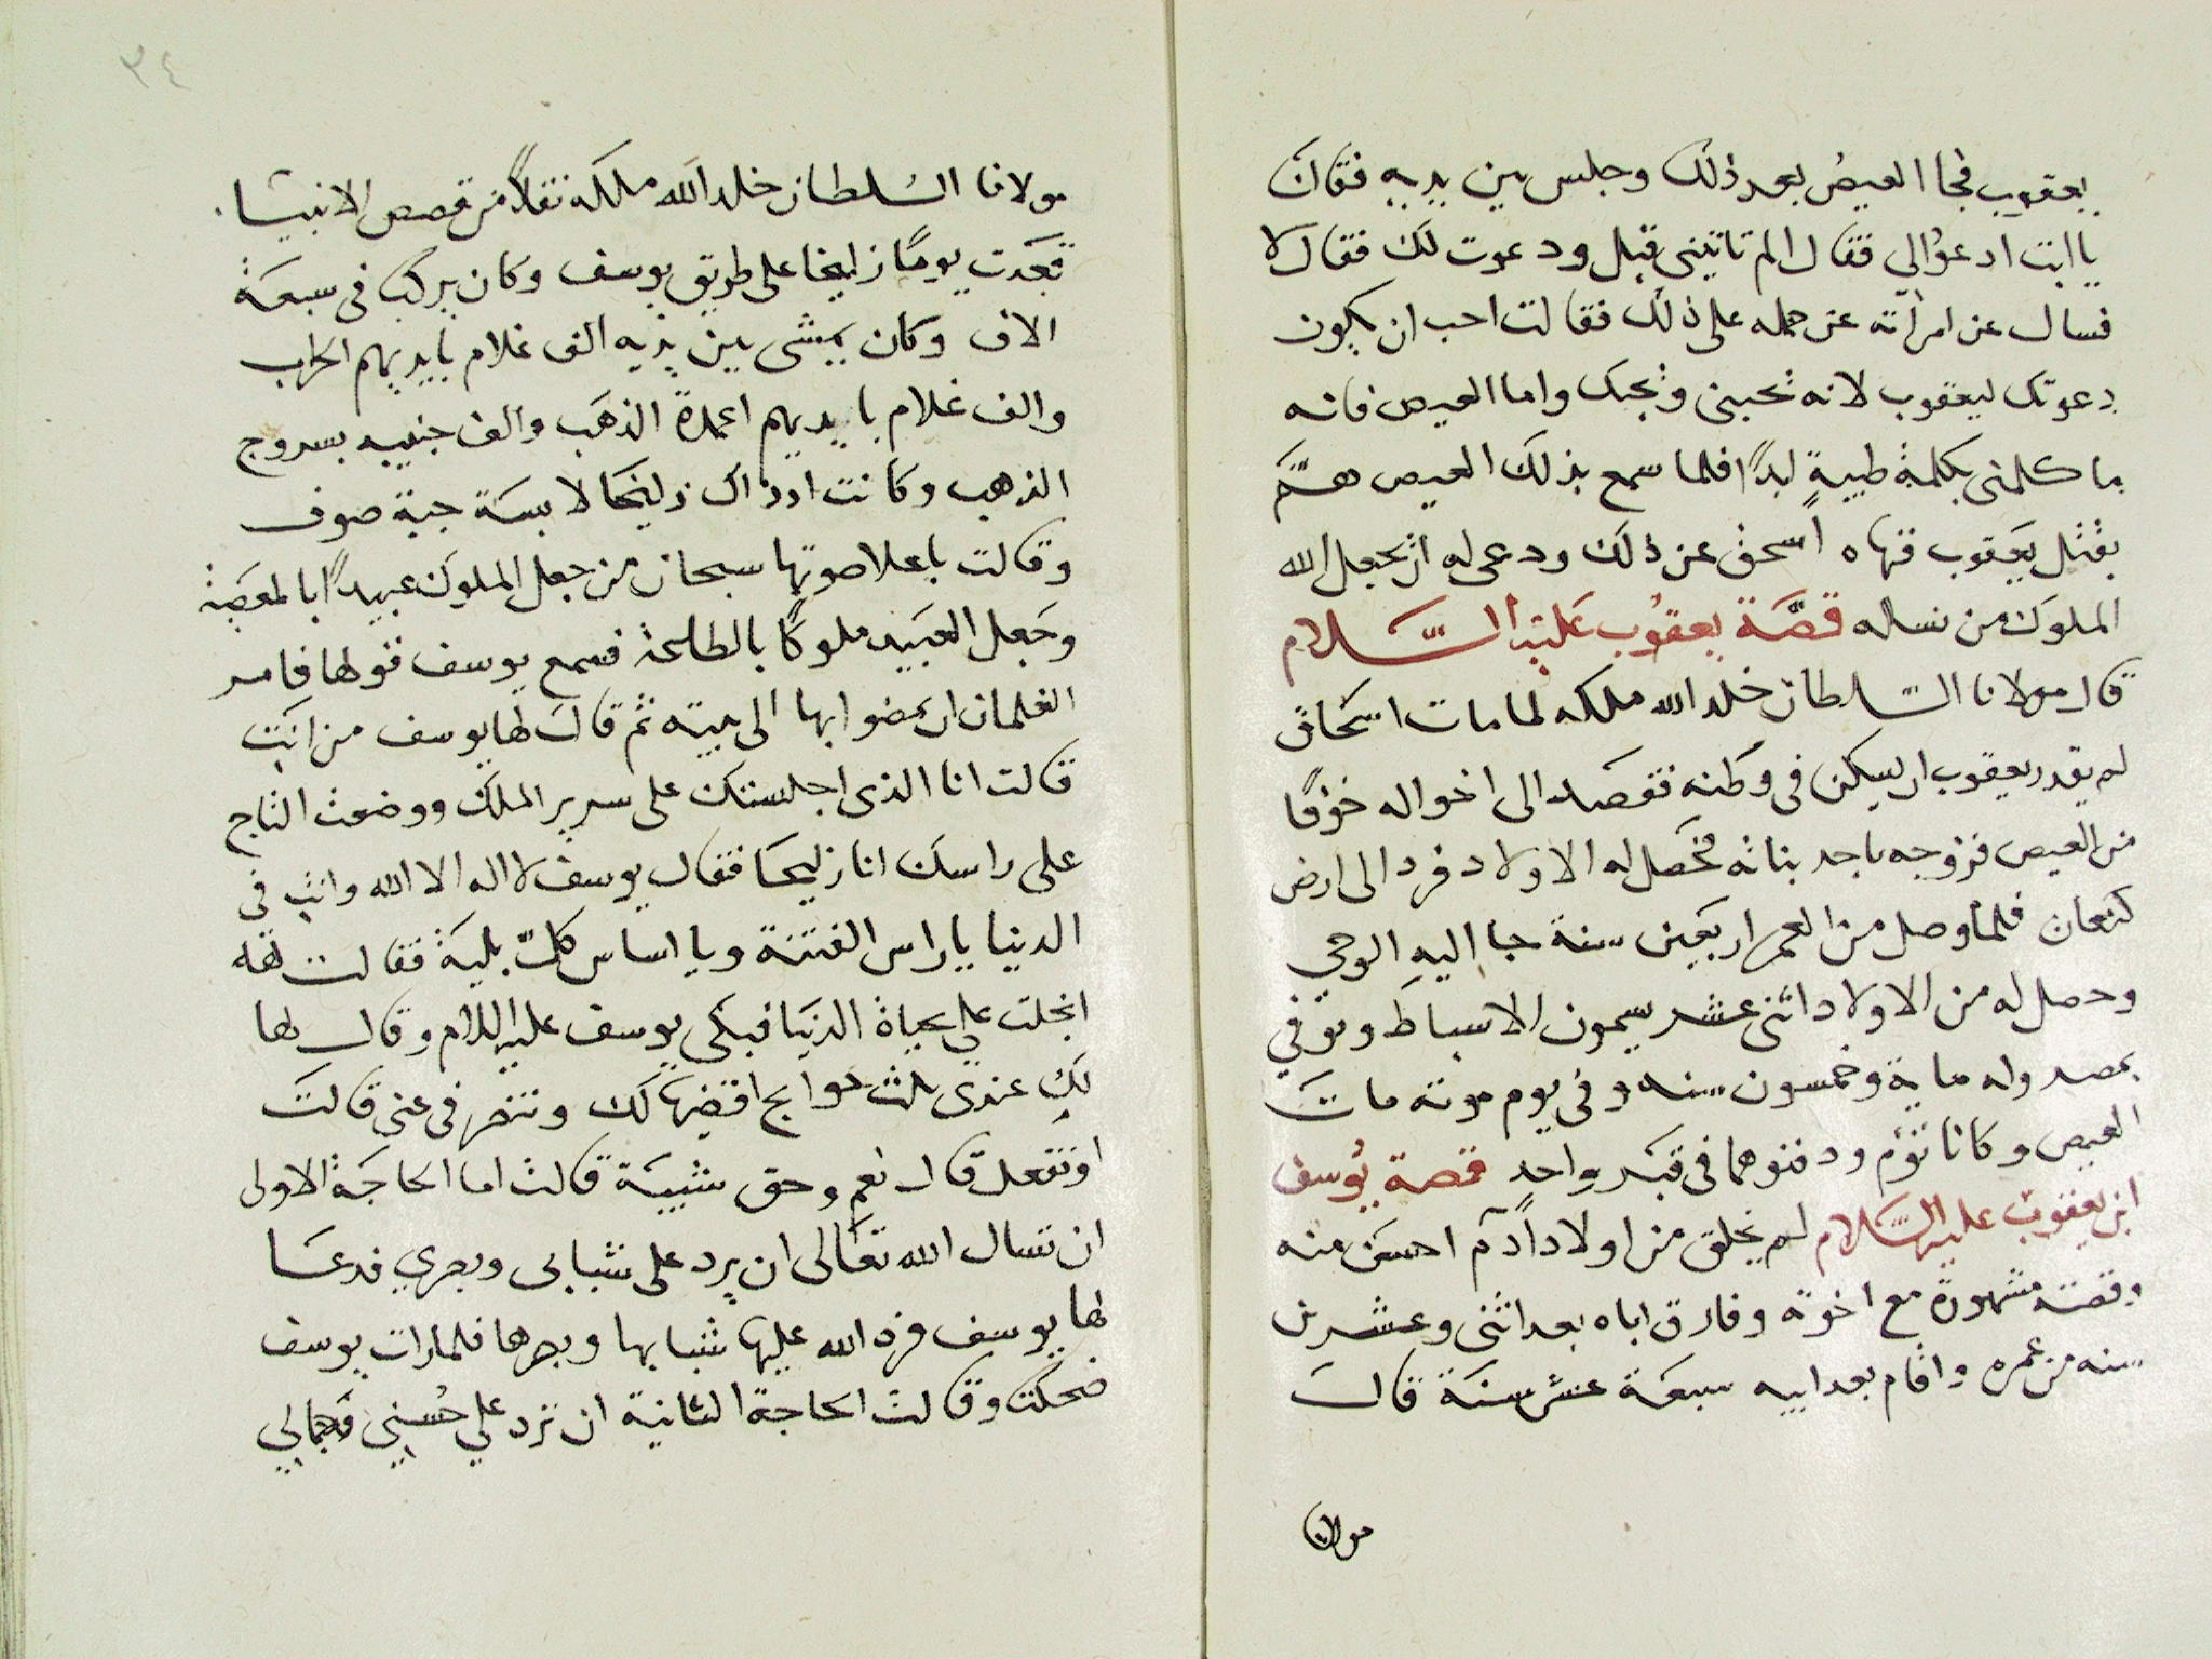 يعقوب فجا العيص بعد ذلك وجلس بين يديه فقال
يا ابت ادعوا لي فقال الم تاتيني قبل ودعوت لك فقال لا
فسال عن امرأته عن حمله على ذلك فقالت احب ان يكون
دعوتك ليعقوب لانه تحبني وتحبك واما العيص فانه
ما كلمني بكلمة طيبةٍ ابدًا فلما سمع بذلك العيص همَّ
بقتل يعقوب فنهاه اسحق عن ذلك ودعى له ان يجعل الله
الملوك من نسله قصَّة يعقوب عليه السَّلام
قال مولانا السلطان خلد الله ملكه لما مات اسحاق
لم يقدر يعقوب ان يسكن في وطنه فقصد الى اخواله خوفًا
من العيص فزوجه باحد بناته فحصل له الاولاد فرد الى ارض
كنعان فلما وصل من العمر اربعين سنة جا اليه الوحي
وحصل له من الاولاد اثنى عشر يسمون الاسباط وتوفي
بمصر وله ماية وخمسون سنه وفى يوم موته مات
العيص وكانا توْم ودفنوهما فى قبر واحد قصة يوسف
ابن يعقوب عليه السَّلام لم يخلق من اولاد اَدم احسن منه
وقصته مشهورة مع اخوته وفارق اباه بعد اثنى وعشرين
سنه من عمره واقام بعد ابيه سبعة عشر سنة قال
مولانا
٣٤
مولانا السلطان خلد الله ملكه نقلاً من قصص الانبيا
قعدت يومًا زليخا على طريق يوسف وكان يركب فى سبعة
الاف وكان يمشى بين يديه الف غلام بايديهم الحراب
والف غلام بايديهم اعمدة الذهب والف جنيبه بسروج
الذهب وكانت اذ ذاك زليخا لابسة جبة صوف
وقالت باعلا صوتها سبحان من جعل الملوك عبيدًا بالمعصية
وجعل العبيد ملوكًا بالطاعة فسمع يوسف قولها فامر
الغلمان ان يمضوا بها الى بيته ثم قال لها يوسف من انت
قالت انا الذى اجلستك على سرير الملك ووضعت التاج
على راسك انا زليخا فقال يوسف لا اله الا الله وانت فى
الدنيا يا راس الفتنة ويا اساس كل بلية فقالت له
ابخلت علي بحياة الدنيا فبكى يوسف عليه السلام وقال لها
لكِ عندى ثلث حوايج اقضيها لك وتنصرفى عنى قالت
اوتفعل قال نعم وحق شيبة قالت اما الحاجة الاولى
ان تسال الله تعالى ان يرد على شبابى وبصري فدعا
لها يوسف فرد الله عليها شبابها وبصرها فلما رات يوسف
ضحكت وقالت الحاجة الثانية ان ترد علي حُسني وجمالي